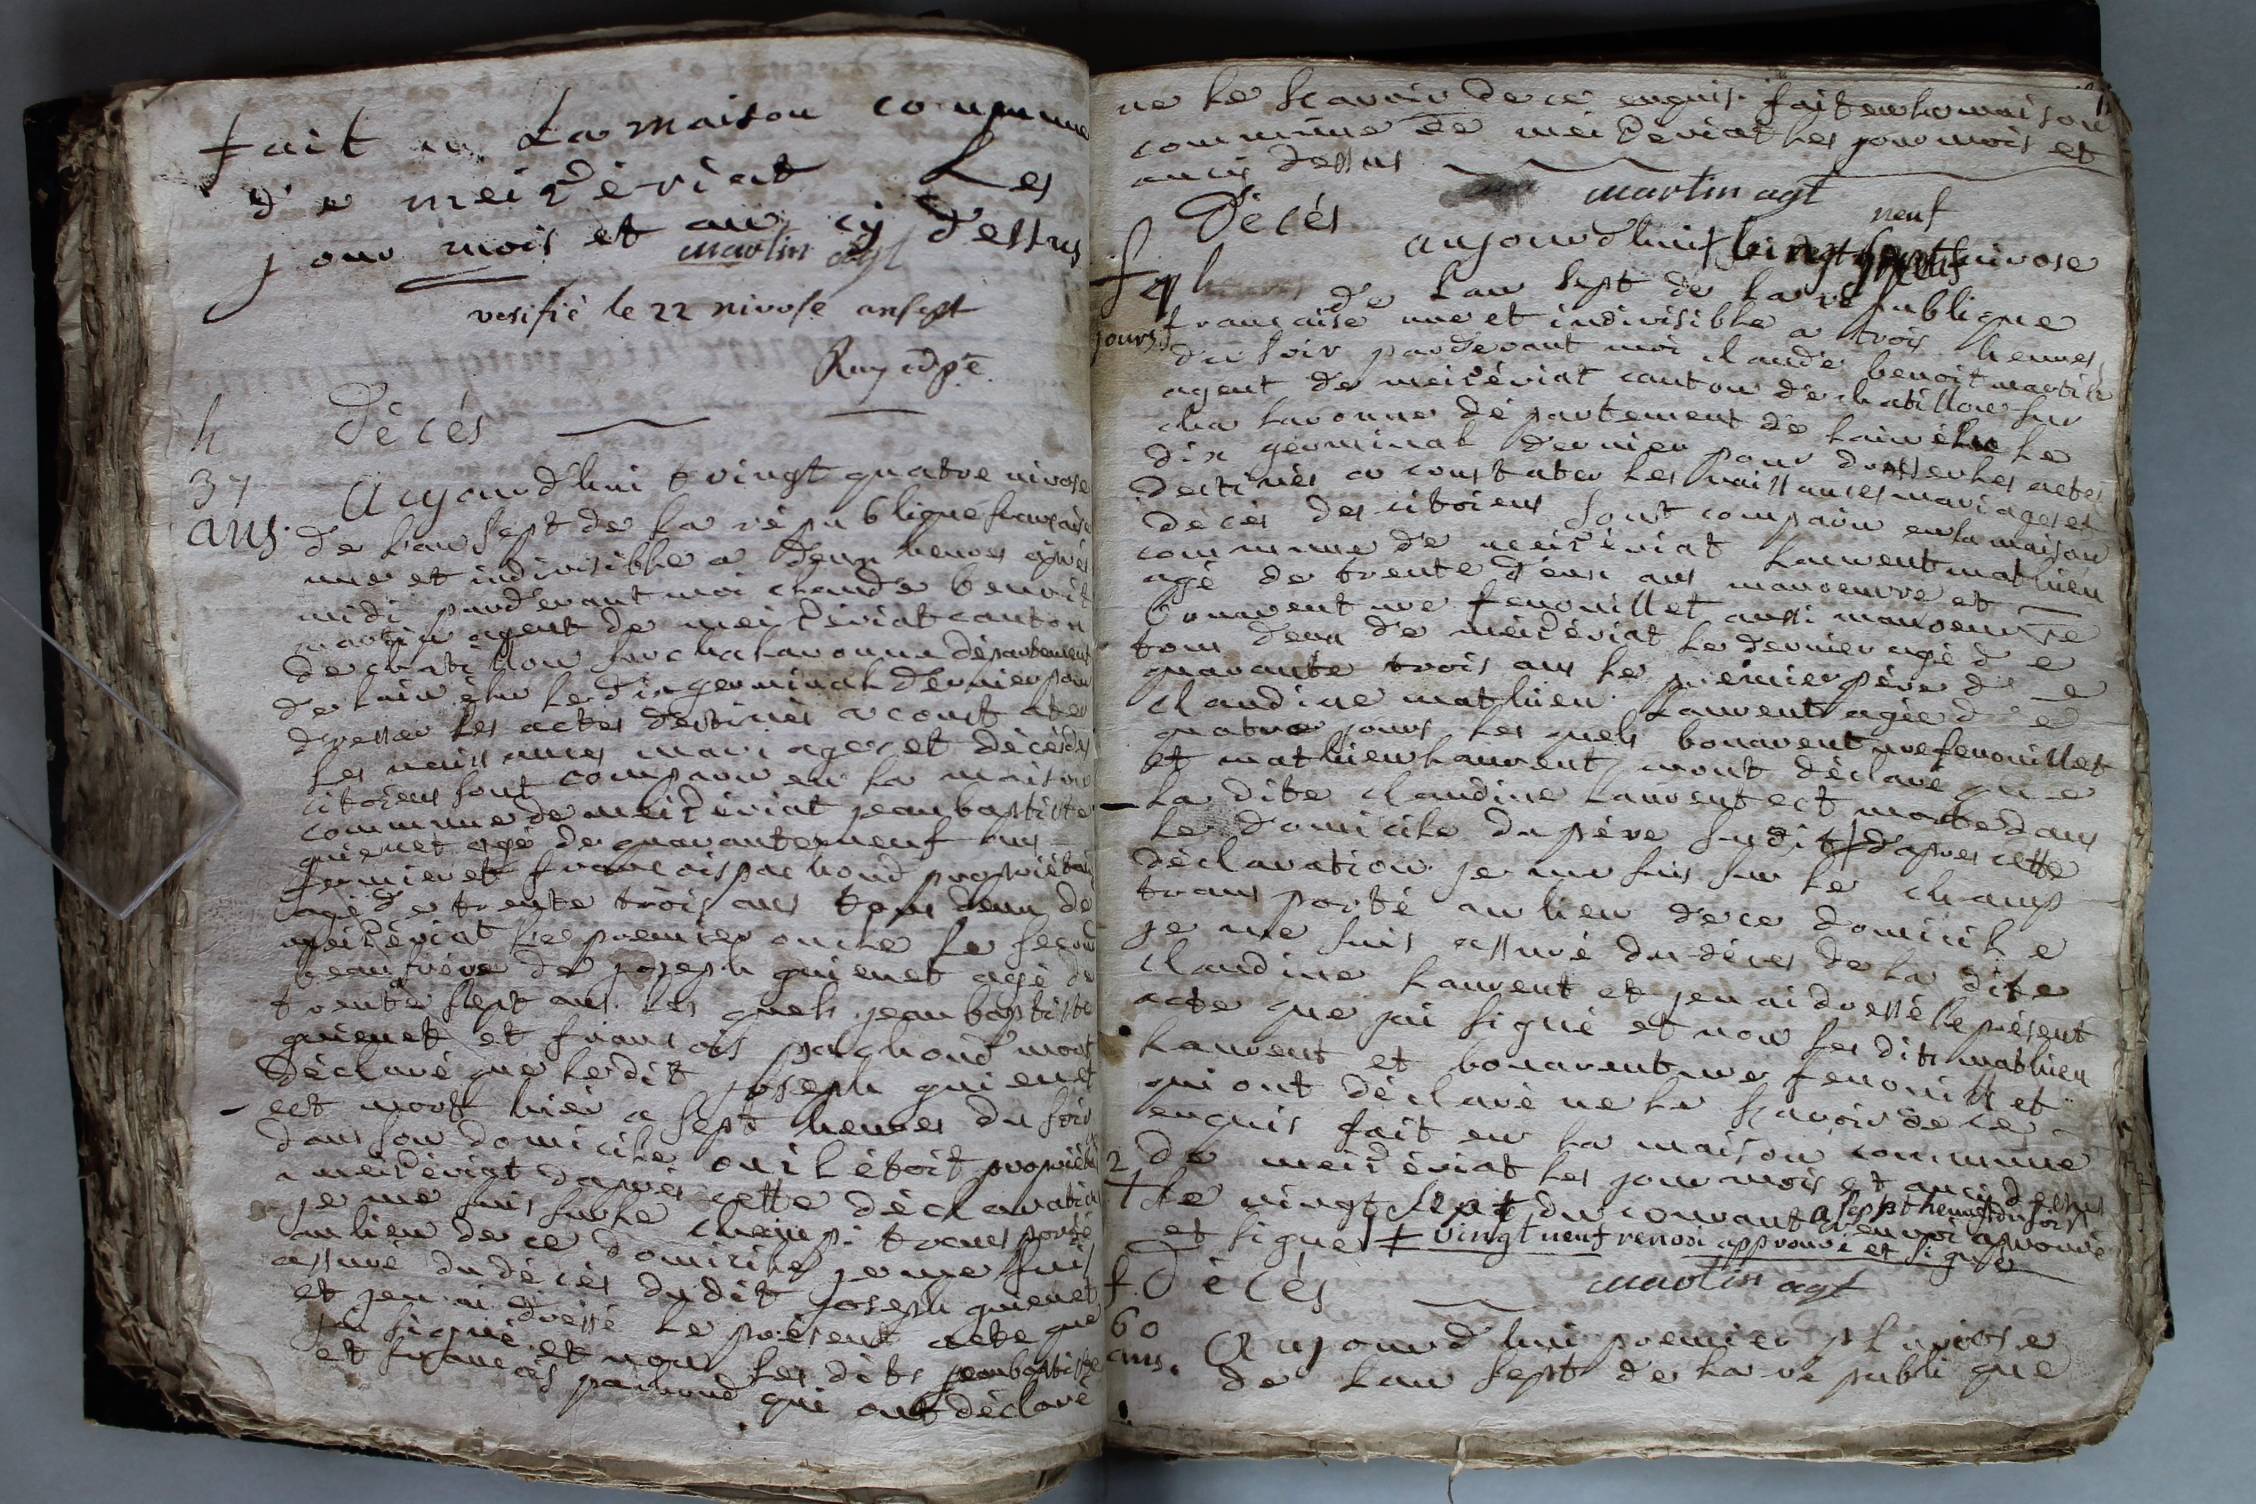 fait en La maison commune
de meizériat Les
jour mois et an cy dessus
martin agt
verifié le 22 nivose an sept
h
décés
37
ans.
Aujourd'hui vingt quatre nivose
de l'an sept de la république francaise
une et indivisible a deux heures après
midi pardevant moi claude benoit
martin agent de meizériat canton
de chatillon sur chalaronne département
de l'ain élu le dix germinal dernier pour
dresser les actes destinés a constater
les naissances mariages et décés des
citoiens sont comparu en la maison
commune de meizériat jean baptiste
quienet agé de quarante neuf ans
fermier et francois pachoud propriétaire
agé de trente trois ans tous deux de
meizériat le premier oncle le second
beaufrére de joseph quienet agé de
trente sept ans les quels jean baptiste
quienet et francois pachoud mont
déclaré que ledit joseph quienet
est mort hier a sept heures du soir
dans son domicile ou il étoit propriétaire
a meizériat dapres cette déclaration
je me suis sur le champ transporté
au lieu de ce domicile je me suis
assuré du décés dudit joseph quienet
et jen ai dressé le présent acte que
jai signé et non les dits jean baptiste
et francois pachoud qui ont déclaré
ne le scavoir de ce enquis fait en la maison
commune de meizériat les jour mois et
an cy dessus
martin agt
décés
neuf
aujourd'hui vingt nivose
f 4
jours.
de l'an sept de la république
francaise une et indivisible a trois heures
du soir pardevant moi claude benoit martin
agent de meizériat canton de chatillon sur
chalaronne département de l'ain élu le
dix germinal dernier pour dresser les actes
destinés a constater les naissances mariages et
décés des citoiens sont comparu en la maison
commune de meizériat laurent mathieu
agé de trente deux ans manoeuvre et
bonaventure fenouillet aussi manoeuvre
tous deux de meizériat le dernier agé de
quarante trois ans le premier pére de
claudine mathieu laurent agée de
quatre jours les quels bonaventure fenouillet
et mathieu laurent mont déclaré que
la dite claudine laurent est morte dans
le domicile du pére sudit dapres cette
déclaration je me suis sur le champ
transporté au lieu de ce domicile
je me suis assuré du déces de la dite
claudine laurent et jen ai dressé le présent
acte que jai signé et non les dits mathieu
laurent et bonaventure fenouillet
qui ont déclaré ne le scavoir de ce
enquis fait en la maison commune
de meizériat les jour mois et an cy dessus
le vingt sept du courant a sept heures du soir renvoi aprouvé
et signé ‡ vingt neuf renvoi approuvé et signé
martin agt
f
décés
60
ans.
Aujourd'hui premier pluviose
de l'an sept de la republique